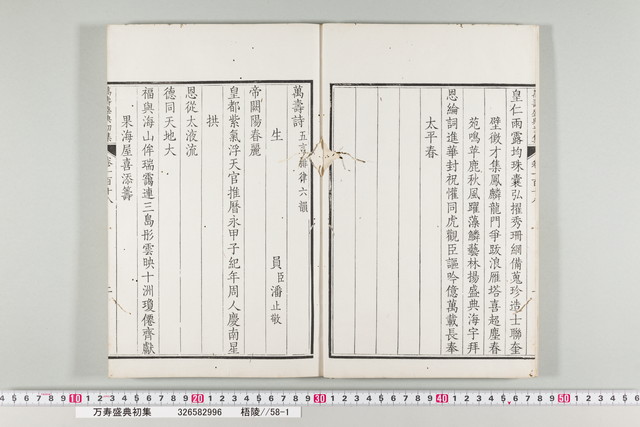 皇仁雨露均珠囊弘擢秀珊網備蒐珍造士聯奎
壁徵才集鳳麟龍門爭跋浪雁塔喜超塵春
苑鳴苹鹿秋風躍藻鱗藝林揚盛典海宇拜
恩綸詞進華封祝懽同虎觀臣謳吟億萬載長奉
太平春
萬壽詩五言排律六韻
生員臣潘止敬
帝闕陽春麗
皇都紫氣浮天官推曆永甲子紀年周人慶南星
拱
恩從太液流
德同天地大
福與海山侔瑞靄連三島形雲映十洲瓊僊齊獻
果海屋喜添籌
卷一百十八
二
10 20 30 40 50
万寿盛典初集 326582996 梧陵//58-1